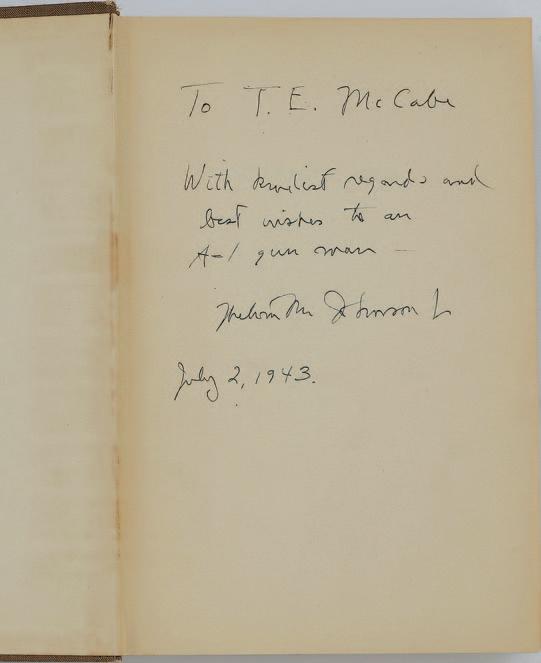 To T. E. McCabe
With kindest regards and
best wishes to an
A-1 gun man —
Melvin M. Johnson Jr
July 2, 1943.